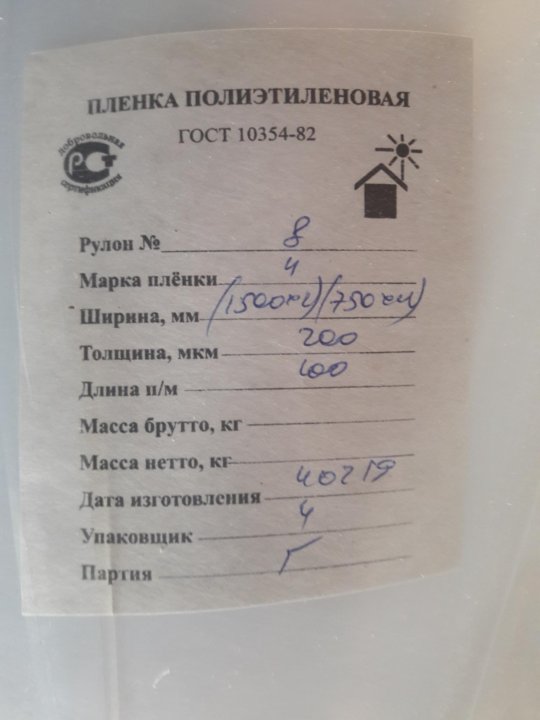 ПЛЕНКА ПОЛИЭТИЛЕНОВАЯ
ГОСТ 10354-82
добровольная
РСТ
сертификация
Рулон № 8
Марка плёнки 4
Ширина, мм (1500мм)(750мм)
Толщина, мкм 200
Длина п/м 100
Масса брутто, кг
Масса нетто, кг
Дата изготовления 40219
Упаковщик 4
Партия Г